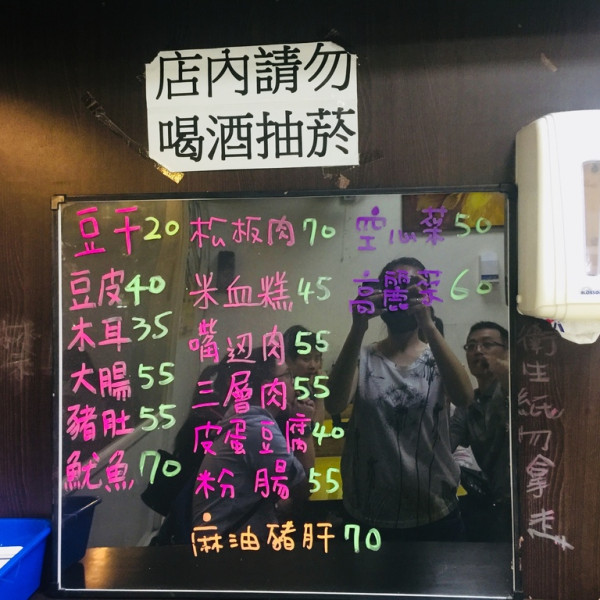 店內請勿
喝酒抽菸
豆干20
豆皮40
木耳35
大腸55
豬肚55
魷魚70
松板肉70
米血糕45
嘴边肉55
三層肉55
皮蛋豆腐40
粉腸55
麻油豬肝70
空心菜50
高麗菜60
衛生紙勿拿走